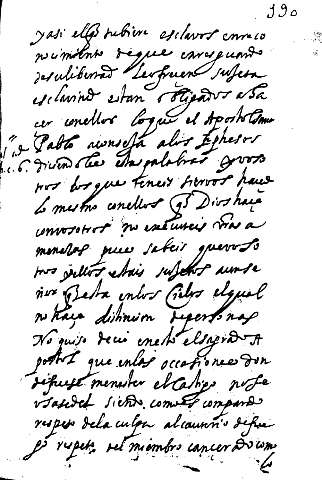 390
y asi el q̃ tubiere esclavos en reco
nocimiento de que en resguardo
de su libertad les fueren sujeta
esclavitud estan obligados a ha
cer con ellos lo que el Apostol san
Pablo aconseja a los Ephesos
diciendoles estas palabras Vosso
tros los que teneis siervos haced
lo mesmo con ellos q̃ Dios haze
con vosotros no executeis vr̃as a
menazas pues sabeis que voso
tros y ellos estais sujetos a un se
ñor q̃ esta en los Cielos el qual
no haze distincion de personas
No quiso decir en esto el sagrado A
postol que en las occasiones don
de fuese menester el castigo no se
usase del siendo como es comparado
respeto de la culpa al cauterio de fue
go respeto del miembro cancerado como